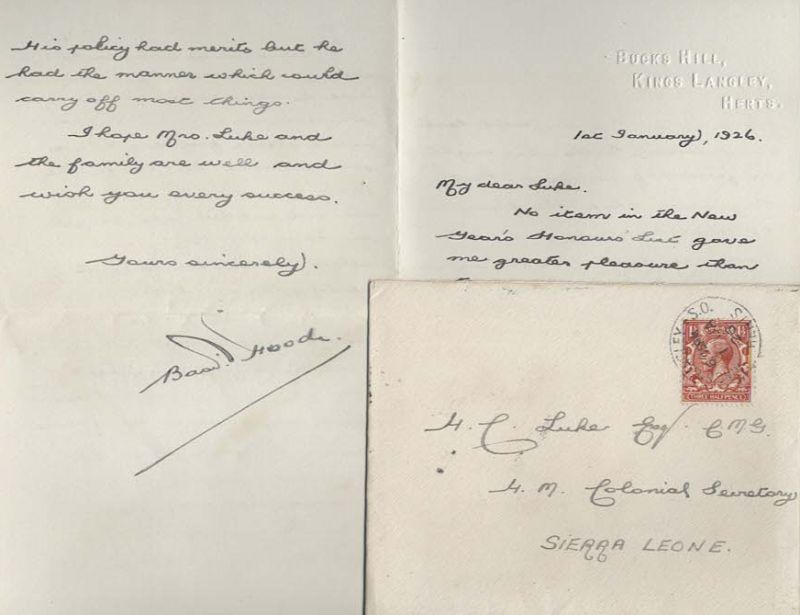 His policy had merits but he
had the manner which could
carry off most things.
I hope Mrs. Luke and
the family are well and
wish you every success.
Yours sincerely,
Basil Hoode.
BUCKS HILL,
KINGS LANGLEY,
HERTS.
1st January, 1926.
My dear Luke.
No item in the New
Year's Honours' List gave
me greater pleasure than
S.O.
THREE HALFPENCE
H. C. Luke Esq. CMG.
H. M. Colonial Secretary
SIERRA LEONE.